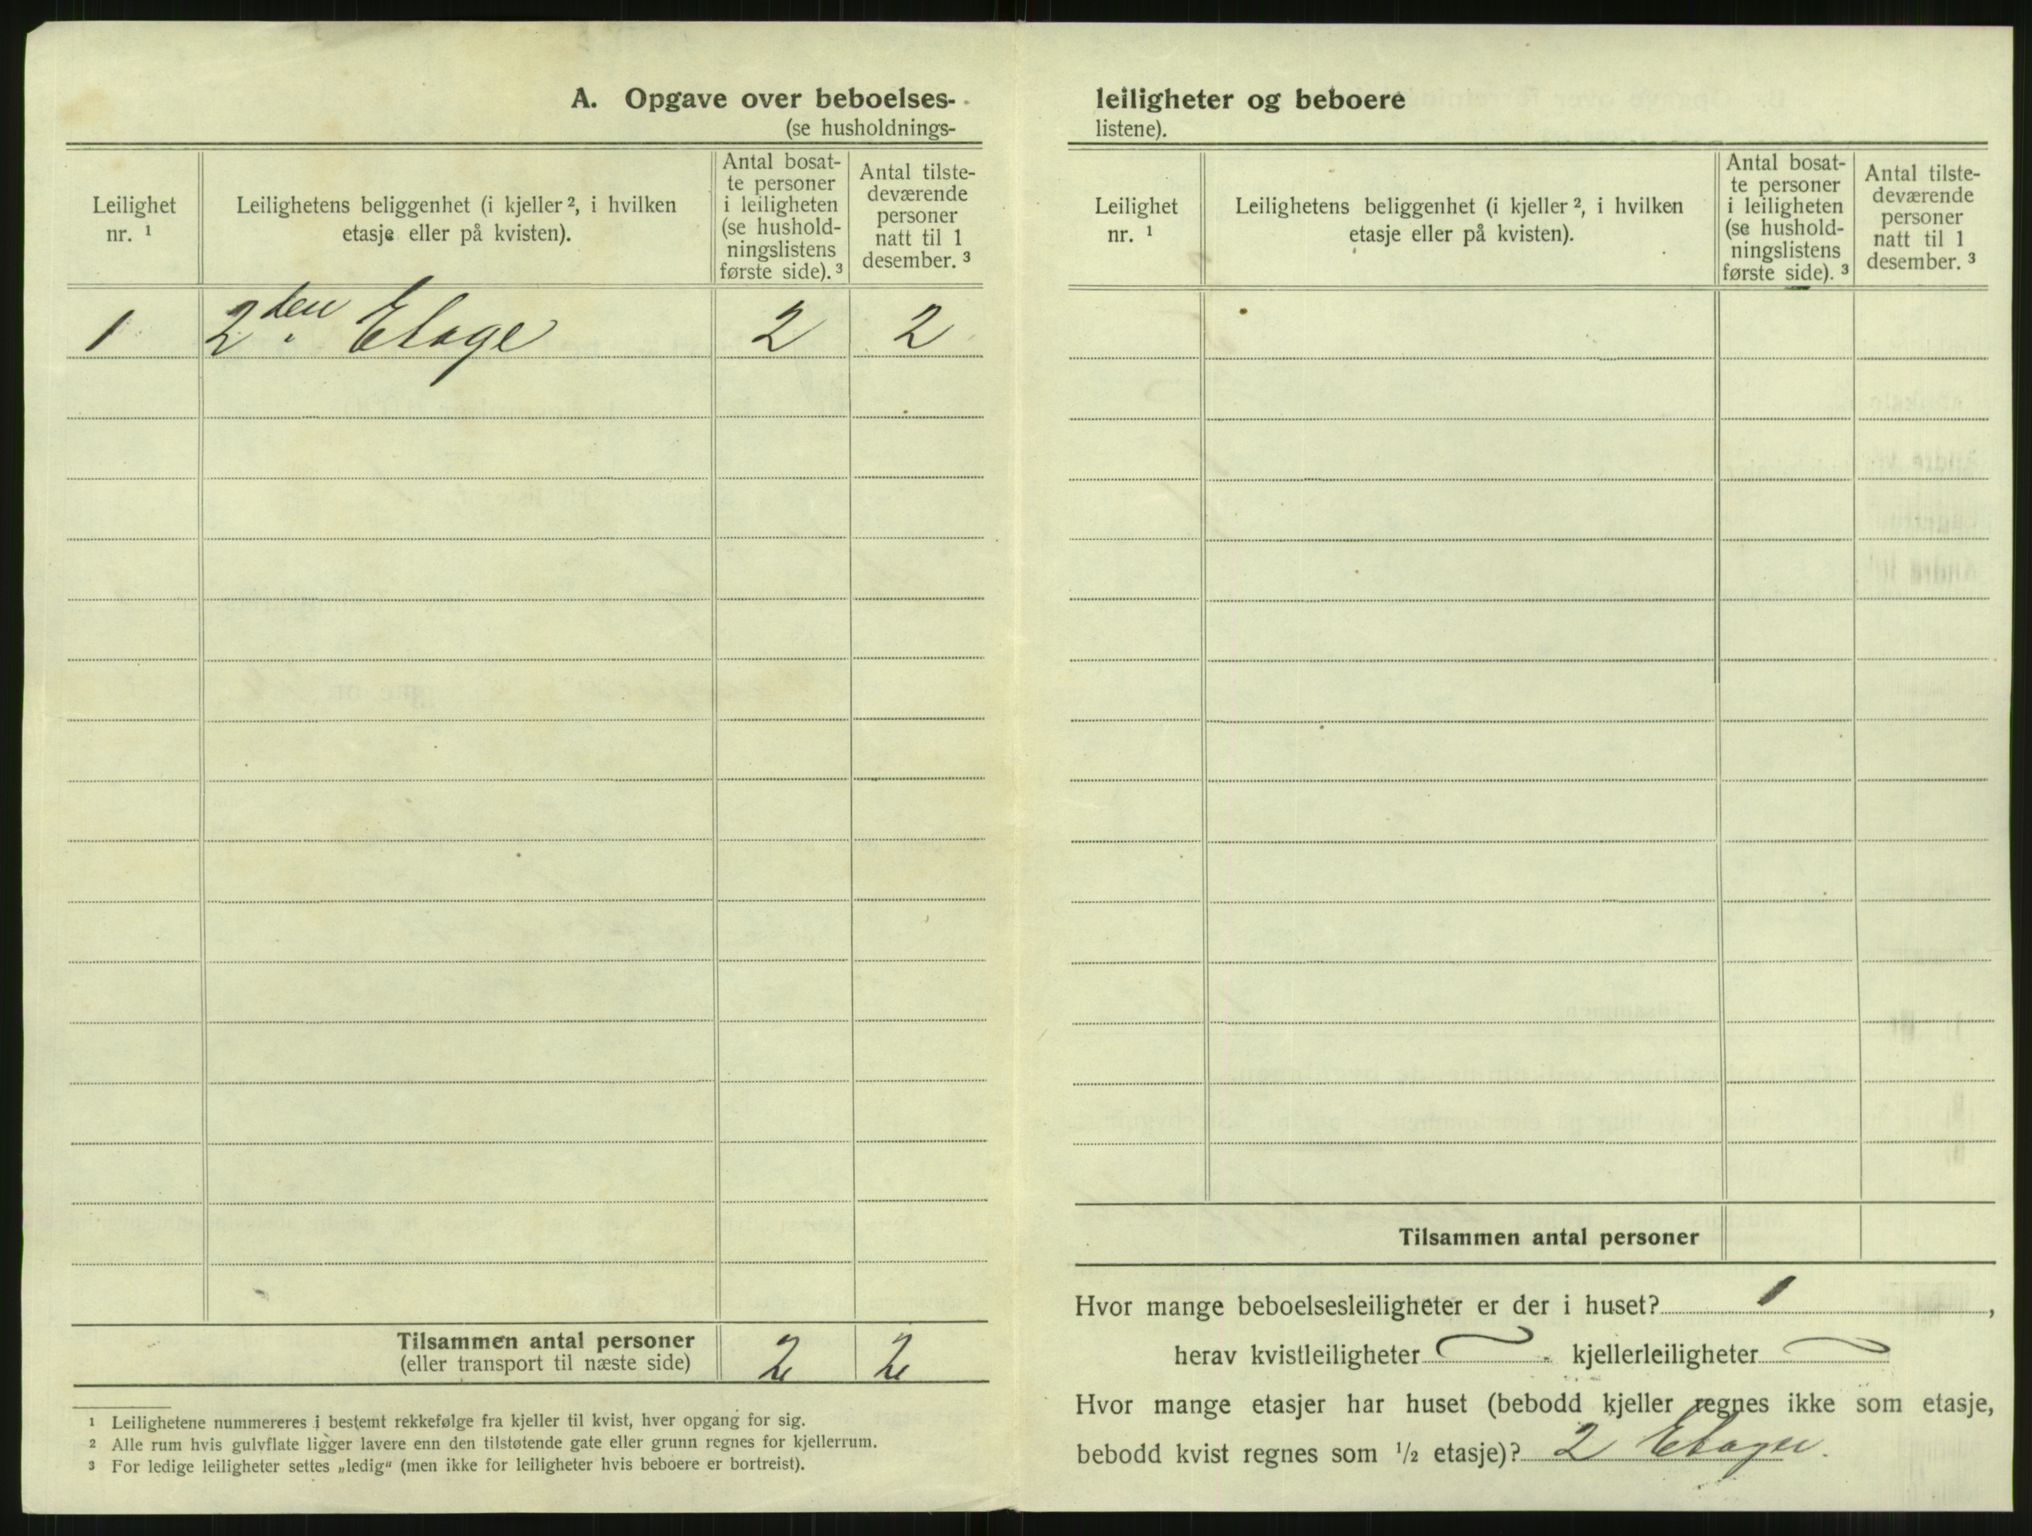 A. Opgave over beboelses-
(se husholdnings-
Leilighet
nr. 1
Leilighetens beliggenhet (i kjeller 2, i hvilken
etasje eller på kvisten).
Antal bosat-
te personer
i leiligheten
(se hushold-
ningslistens
første side). 3
Antal tilste-
deværende
personer
natt til 1
desember. 3
1 2den Etage 2 2
Tilsammen antal personer 2 2
(eller transport til næste side)
1 Leilighetene nummereres i bestemt rekkefølge fra kjeller til kvist, hver opgang for sig.
2 Alle rum hvis gulvflate ligger lavere enn den tilstøtende gate eller grunn regnes for kjellerrum.
3 For ledige leiligheter settes „ledig“ (men ikke for leiligheter hvis beboere er bortreist).
leiligheter og beboere
listene).
Leilighet
nr. 1
Leilighetens beliggenhet (i kjeller 2, i hvilken
etasje eller på kvisten).
Antal bosat-
te personer
i leiligheten
(se hushold-
ningslistens
første side). 3
Antal tilste-
deværende
personer
natt til 1
desember. 3
Tilsammen antal personer
Hvor mange beboelsesleiligheter er der i huset? 1,
herav kvistleiligheter kjellerleiligheter
Hvor mange etasjer har huset (bebodd kjeller regnes ikke som etasje,
bebodd kvist regnes som 1/2 etasje)? 2 Etager.